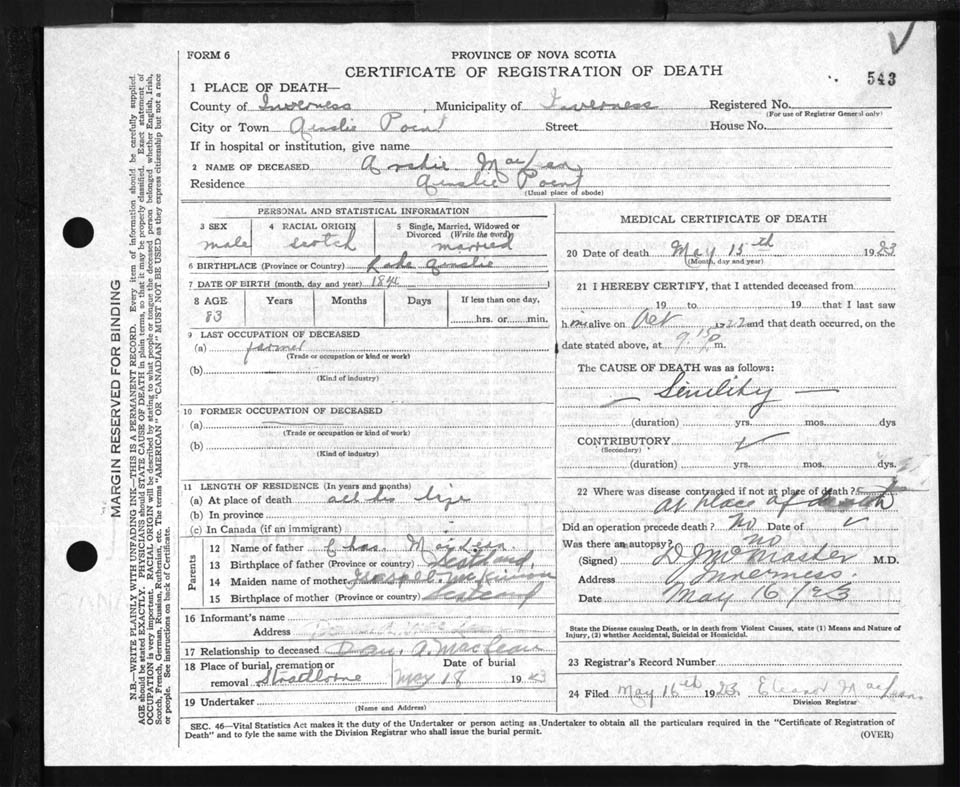 543
FORM 6
PROVINCE OF NOVA SCOTIA
CERTIFICATE OF REGISTRATION OF DEATH
1 PLACE OF DEATH—
County of Inverness, Municipality of Inverness Registered No.
(For use of Registrar General only)
City or Town Ainslie Point Street House No.
If in hospital or institution, give name
2 NAME OF DECEASED Archie MacLean
Residence Ainslie Point
(Usual place of abode)
PERSONAL AND STATISTICAL INFORMATION
3 SEX 4 RACIAL ORIGIN 5 Single, Married, Widowed or Divorced (Write the word)
male Scotch married
6 BIRTHPLACE (Province or Country) Lake Ainslie
7 DATE OF BIRTH (month, day and year)
8 AGE Years Months Days If less than one day,
83 hrs. or min.
9 LAST OCCUPATION OF DECEASED
(a) farmer
(Trade or occupation or kind or work)
(b)
(Kind of industry)
10 FORMER OCCUPATION OF DECEASED
(a)
(Trade or occupation or kind of work)
(b)
(Kind of industry)
11 LENGTH OF RESIDENCE (In years and months)
(a) At place of death all his life
(b) In province
(c) In Canada (if an immigrant)
Parents
12 Name of father Chas.
13 Birthplace of father (Province or country) Scotland
14 Maiden name of mother
15 Birthplace of mother (Province or country) Scotland
16 Informant's name
Address
17 Relationship to deceased Dan. A. MacLean
18 Place of burial, cremation or removal Strathlorne Date of burial May 18 1923
19 Undertaker
(Name and Address)
MEDICAL CERTIFICATE OF DEATH
20 Date of death May 15th 1923
(Month, day and year)
21 I HEREBY CERTIFY, that I attended deceased from
19 to 19 that I last saw
him alive on Oct 1922 and that death occurred, on the
date stated above, at 9.15 p m.
The CAUSE OF DEATH was as follows:
— Senility —
(duration) yrs. mos. dys
CONTRIBUTORY
(Secondary)
(duration) yrs. mos. dys.
22 Where was disease contracted if not at place of death?
at place of death
Did an operation precede death? No Date of
Was there an autopsy? No
(Signed) D J McMaster M.D.
Address Inverness
Date May 16/23
State the Disease causing Death, or in death from Violent Causes, state (1) Means and Nature of
Injury, (2) whether Accidental, Suicidal or Homicidal.
23 Registrar's Record Number
24 Filed May 16th 1923 Eleanor MacLean
Division Registrar
SEC. 46—Vital Statistics Act makes it the duty of the Undertaker or person acting as Undertaker to obtain all the particulars required in the "Certificate of Registration of
Death" and to fyle the same with the Division Registrar who shall issue the burial permit.
(OVER)
MARGIN RESERVED FOR BINDING
N.B.—WRITE PLAINLY WITH UNFADING INK—THIS IS A PERMANENT RECORD. Every item of information should be carefully supplied.
AGE should be stated EXACTLY. PHYSICIANS should STATE CAUSE OF DEATH in plain terms, so that it may be properly classified. Exact statement of
OCCUPATION is very important. RACIAL ORIGIN will be described by stating to what people or tongue the deceased person belonged whether English, Irish,
Scotch, French, German, Russian, Ruthenian, etc. The terms "AMERICAN" OR "CANADIAN" MUST NOT BE USED as they express citizenship but not a race
or people. See instructions on back of Certificate.